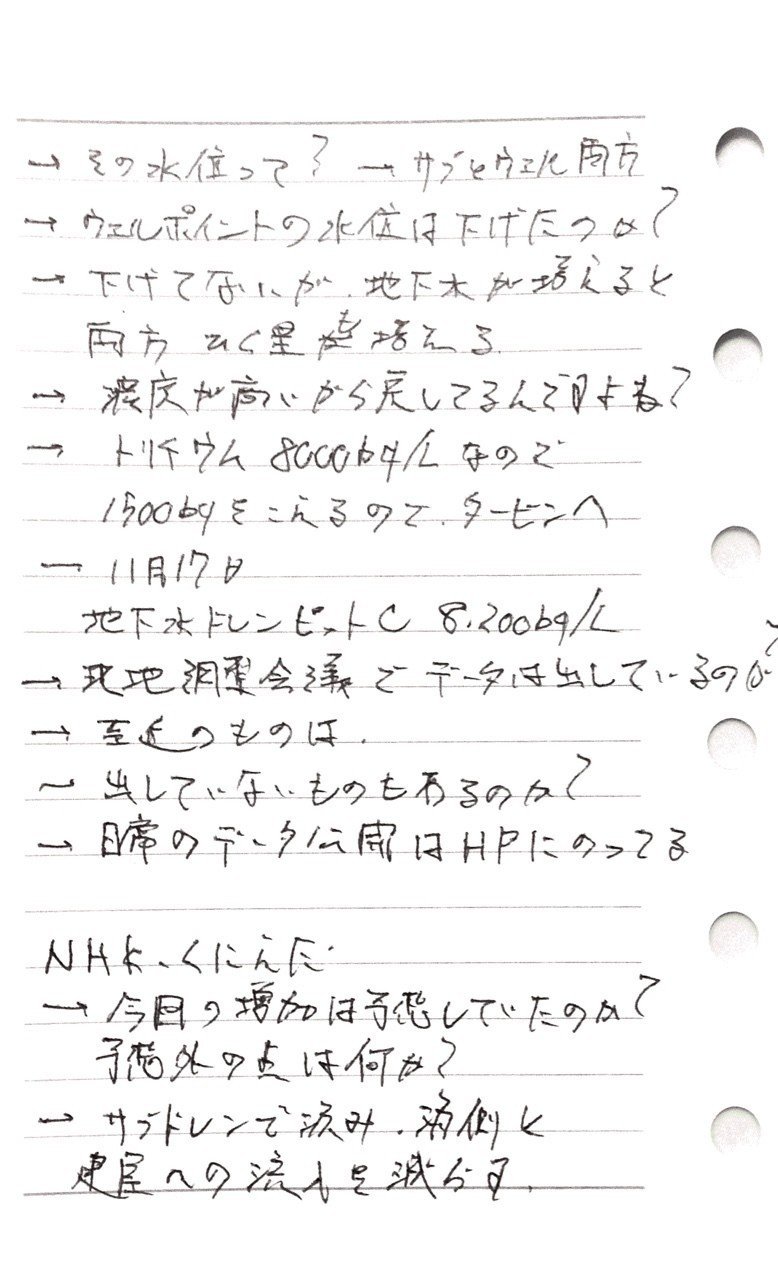 → その水位って? → サブとウェル両方
→ ウェルポイントの水位は下げたのか?
→ 下げてないが、地下水が増えると
両方 ひく量が増える
→ 濃度が高いから戻してるんですよね?
→ トリチウム 8000bq/L なので
1500bqをこえるので、タービンへ
→ 11月17日
地下水ドレンピットC 8,200bq/L
→ 現地調整会議でデータは出しているのか?
→ 至近のものは.
→ 出していないものもあるのか?
→ 日常のデータ公開はHPにのってる
NHK、くにえだ
→ 今回の増加は予想していたのか?
予想外の点は何か?
→ サブドレンで汲み、海側と
建屋への流入を減らす.